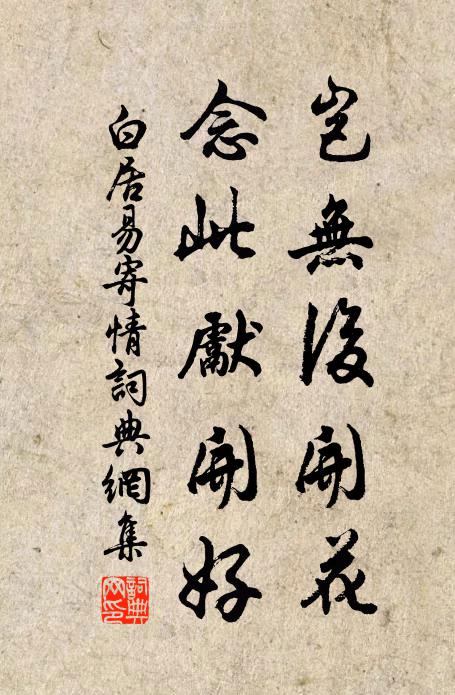 豈無後開花
念此獻開好
白居易寄情詞典網集
詞典網印